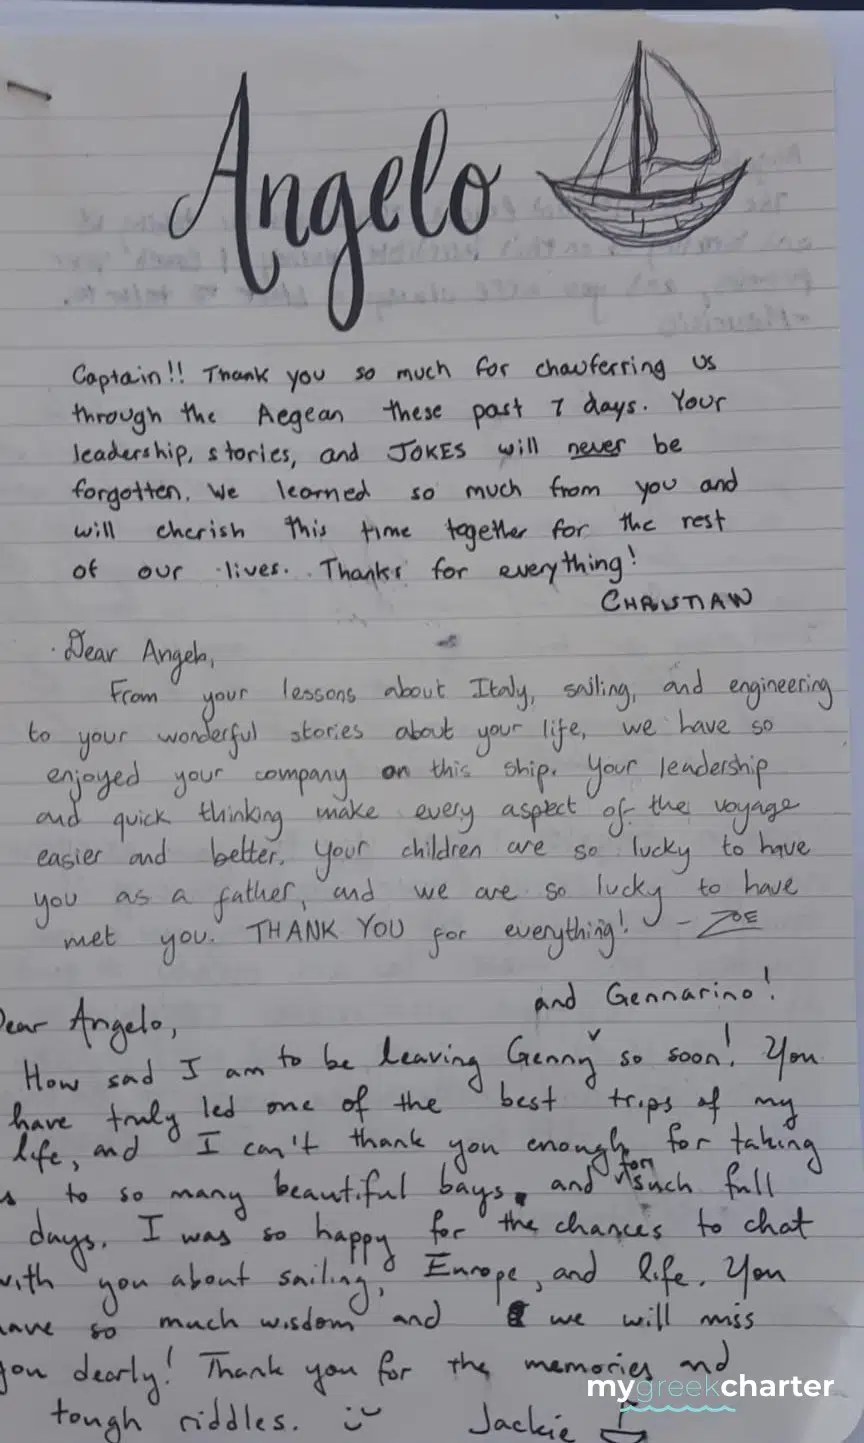 Angelo
Captain!! Thank you so much for chauferring us
through the Aegean these past 7 days. Your
leadership, stories, and JOKES will never be
forgotten. We learned so much from you and
will cherish this time together for the rest
of our lives. Thanks for everything!
CHRISTIAN
Dear Angelo,
From your lessons about Italy, sailing, and engineering
to your wonderful stories about your life, we have so
enjoyed your company on this ship. Your leadership
and quick thinking make every aspect of the voyage
easier and better. Your children are so lucky to have
you as a father, and we are so lucky to have
met you. THANK YOU for everything! - ZOE
and Gennarino!
Dear Angelo,
How sad I am to be leaving Genny so soon! You
have truly led one of the best trips of my
life, and I can't thank you enough for taking
to so many beautiful bays, and for such full
days. I was so happy for the chances to chat
with you about sailing, Europe, and life. You
have so much wisdom and we will miss
you dearly! Thank you for the memories and
tough riddles. :)
Jackie
mygreekcharter